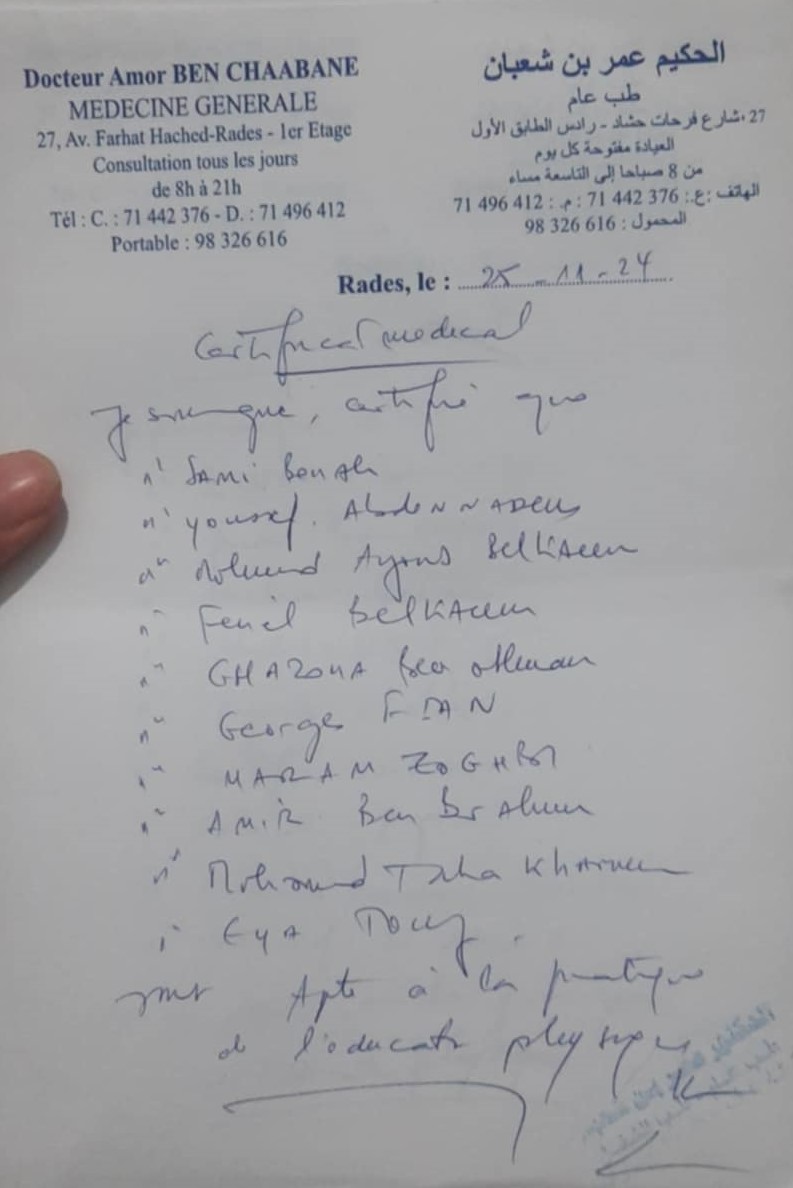 Docteur Amor BEN CHAABANE
MEDECINE GENERALE
27, Av. Farhat Hached-Rades - 1er Etage
Consultation tous les jours
de 8h à 21h
Tél : C. : 71 442 376 - D. : 71 496 412
Portable : 98 326 616
الحكيم عمر بن شعبان
طب عام
27، شارع فرحات حشاد - رادس الطابق الأول
العيادة مفتوحة كل يوم
من 8 صباحا إلى التاسعة مساء
الهاتف : ع. : 376 442 71 : م. : 412 496 71
المحمول : 616 326 98
Rades, le : 25-11-24
Certificat medical
Je soussigne, certifie que
Sami Ben Ali
Youssef. Abdennadeur
Mohamed Ayoub Belkacem
Belkacem
GHAZOUA Ben Othman
Georges
MARAM ZOGHBI
AMIR Ben Brahim
Mohamed Taha
Eya
sont Apte à la pratique
de l'education physique